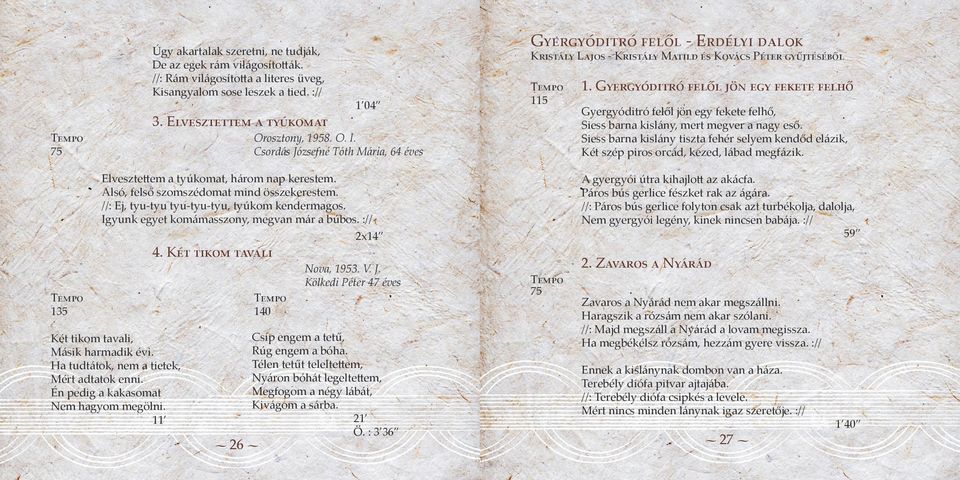 Úgy akartalak szeretni, ne tudják,
De az egek rám világosították.
//: Rám világosította a literes üveg,
Kisangyalom sose leszek a tied. ://
1´04˝
3. Elvesztettem a tyúkomat
Tempo
75
Orosztony, 1958. O. I.
Csordás Józsefné Tóth Mária, 64 éves
Elvesztettem a tyúkomat, három nap kerestem.
Alsó, felső szomszédomat mind összekerestem.
//: Ej, tyu-tyu tyu-tyu-tyu, tyúkom kendermagos.
Igyunk egyet komámasszony, megvan már a búbos. ://
2x14˝
4. Két tikom tavali
Nova, 1953. V. J.
Kölkedi Péter 47 éves
Tempo
135
Két tikom tavali,
Másik harmadik évi.
Ha tudtátok, nem a tietek,
Mért adtatok enni.
Én pedig a kakasomat
Nem hagyom megölni.
11´
Tempo
140
Csíp engem a tetű,
Rúg engem a bóha.
Télen tetűt teleltettem,
Nyáron bóhát legeltettem,
Megfogom a négy lábát,
Kivágom a sárba.
21´
Ö. : 3´36˝
~ 26 ~
Gyergyóditró felől - Erdélyi dalok
Kristály Lajos - Kristály Matild és Kovács Péter gyűjtéséből
Tempo
115
1. Gyergyóditró felől jön egy fekete felhő
Gyergyóditró felől jön egy fekete felhő,
Siess barna kislány, mert megver a nagy eső.
Siess barna kislány tiszta fehér selyem kendőd elázik,
Két szép piros orcád, kézed, lábad megfázik.
A gyergyói útra kihajlott az akácfa.
Páros bús gerlice fészket rak az ágára.
//: Páros bús gerlice folyton csak azt turbékolja, dalolja,
Nem gyergyói legény, kinek nincsen babája. ://
59˝
2. Zavaros a Nyárád
Tempo
75
Zavaros a Nyárád nem akar megszállni.
Haragszik a rózsám nem akar szólani.
//: Majd megszáll a Nyárád a lovam megissza.
Ha megbékélsz rózsám, hezzám gyere vissza. ://
Ennek a kislánynak dombon van a háza.
Terebély diófa pitvar ajtajába.
//: Terebély diófa csipkés a levele.
Mért nincs minden lánynak igaz szeretője. ://
1´40˝
~ 27 ~